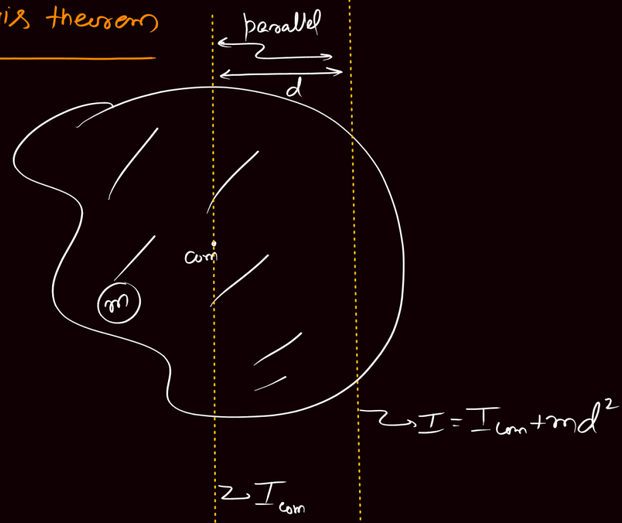 is theorem
parallel
d
com
m
I = I com + md²
I com